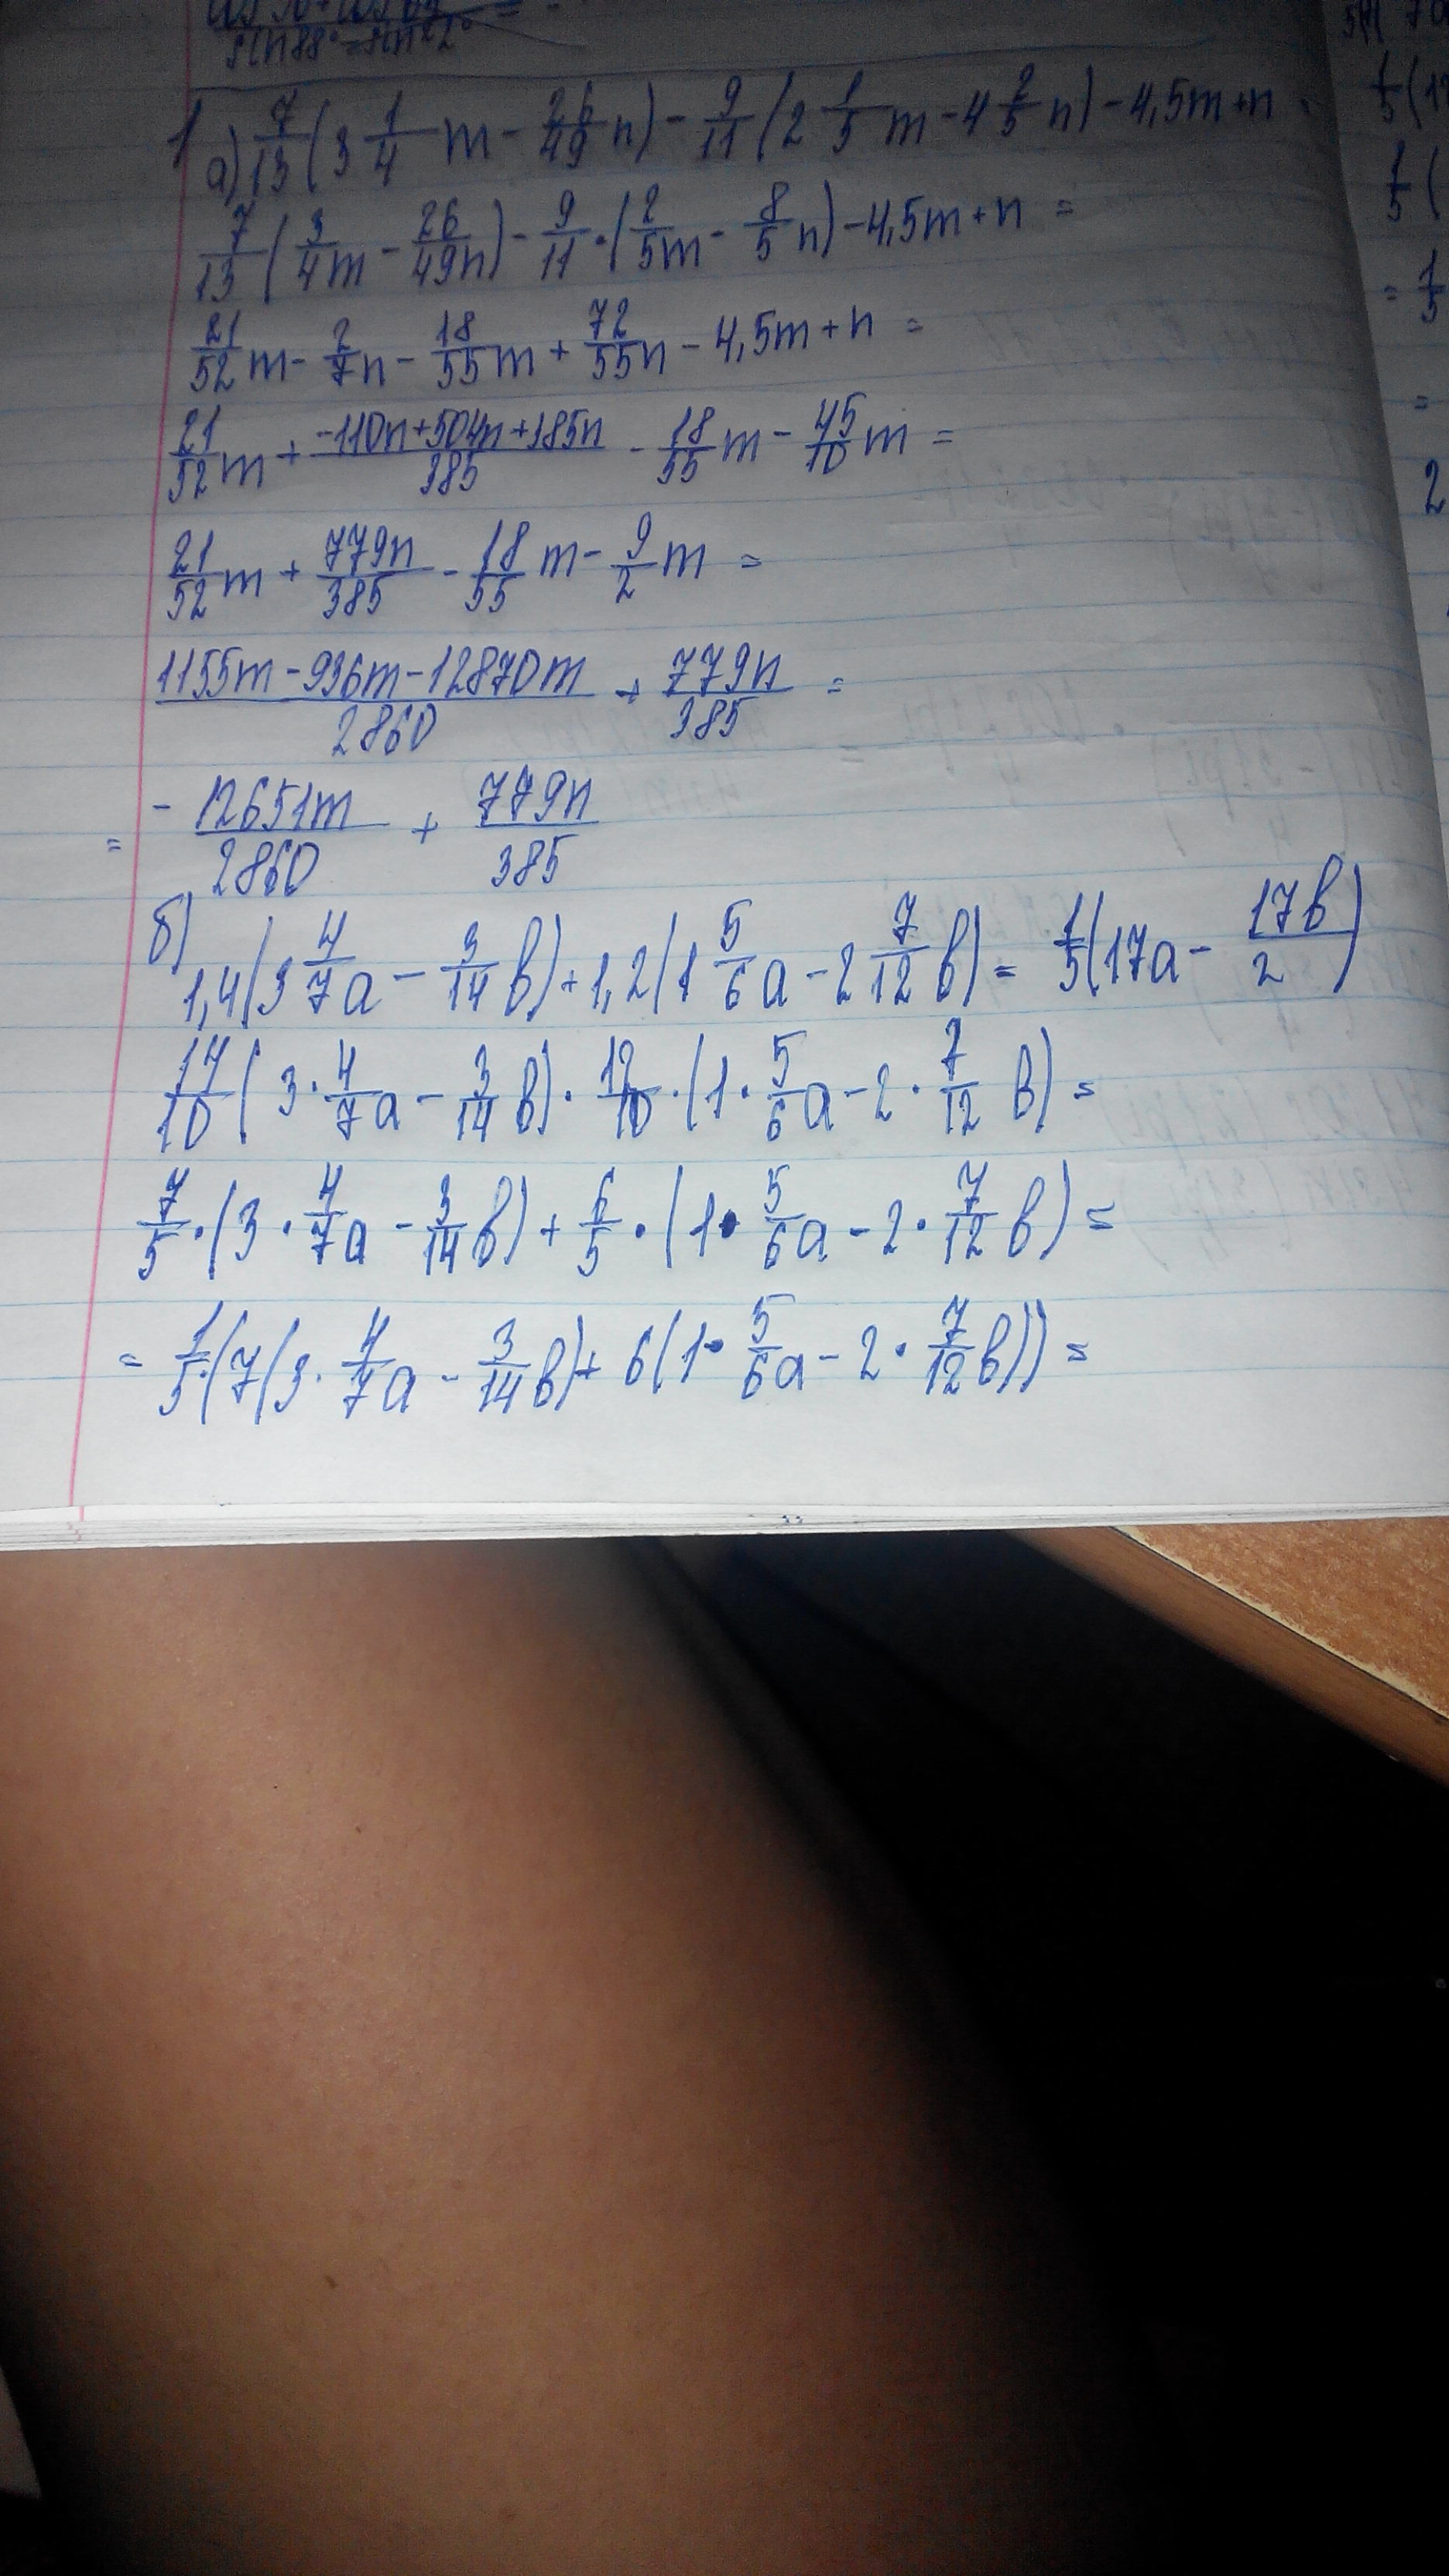 sin88°-sin22°
1 а) 7/13(3 1/4 m - 26/49 n) - 9/11(2 1/5 m - 4 2/5 n) - 4,5m+n
7/13(3/4m - 26/49n) - 9/11·(2/5m - 8/5 n) - 4,5m+n =
21/52m - 2/7n - 18/55m + 72/55n - 4,5m+n =
21/52m + (-110n+504n+385n)/385 - 18/55m - 45/10m =
21/52m + 779n/385 - 18/55 m - 9/2m =
(1155m-936m-12870m)/2860 + 779n/385 =
= - 12651m/2860 + 779n/385
б) 1,4(3 4/7a - 3/14 b)+1,2(1 5/6a - 2 7/12 b) = 1/5(17a - 17b/2)
14/10(3·4/7a - 3/14 b)·12/10·(1·5/6a - 2·7/12 b) =
7/5·(3·4/7a - 3/14b) + 6/5·(1·5/6a - 2·7/12b) =
= 1/5(7(3·4/7a - 3/14b) + 6(1·5/6a - 2·7/12b)) =